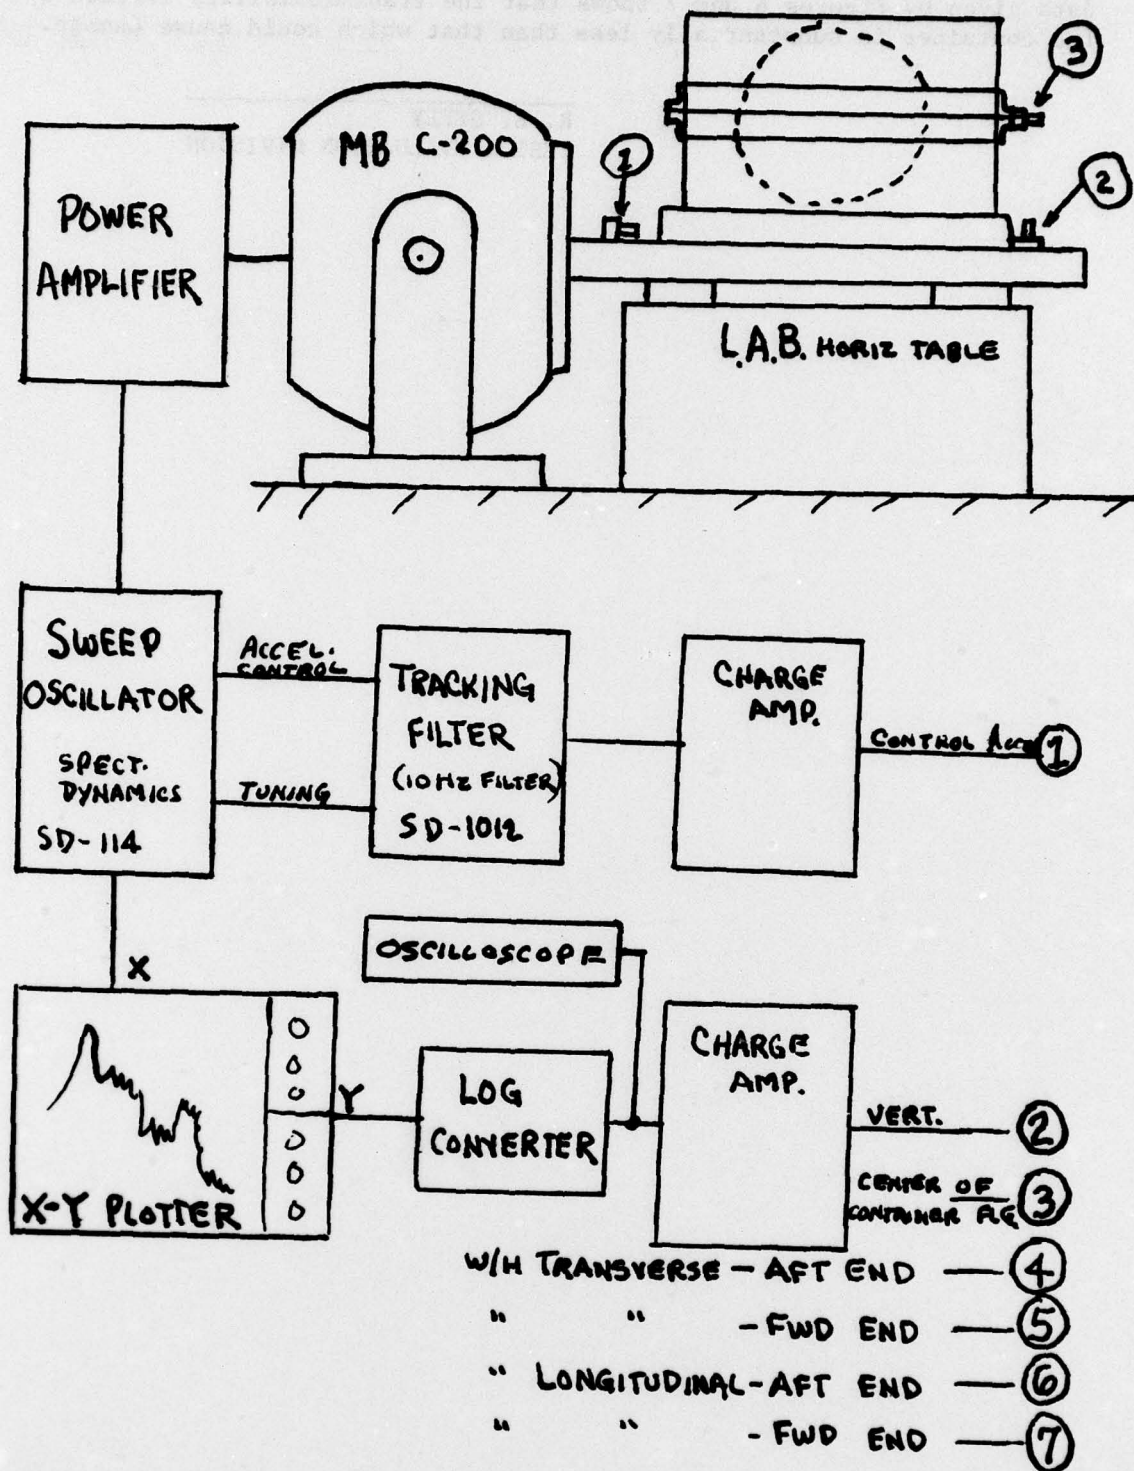 MB C-200
POWER
AMPLIFIER
1
2
3
L.A.B. HORIZ TABLE
SWEEP
OSCILLATOR
SPECT.
DYNAMICS
SD-114
ACCEL.
CONTROL
TUNING
TRACKING
FILTER
(10 HZ FILTER)
SD-1012
CHARGE
AMP.
CONTROL ACCEL
1
X
OSCILLOSCOPE
X-Y PLOTTER
Y
LOG
CONVERTER
CHARGE
AMP.
VERT.
2
CENTER OF
CONTAINER FLG
3
W/H TRANSVERSE - AFT END — 4
" " - FWD END — 5
" LONGITUDINAL - AFT END — 6
" " - FWD END — 7